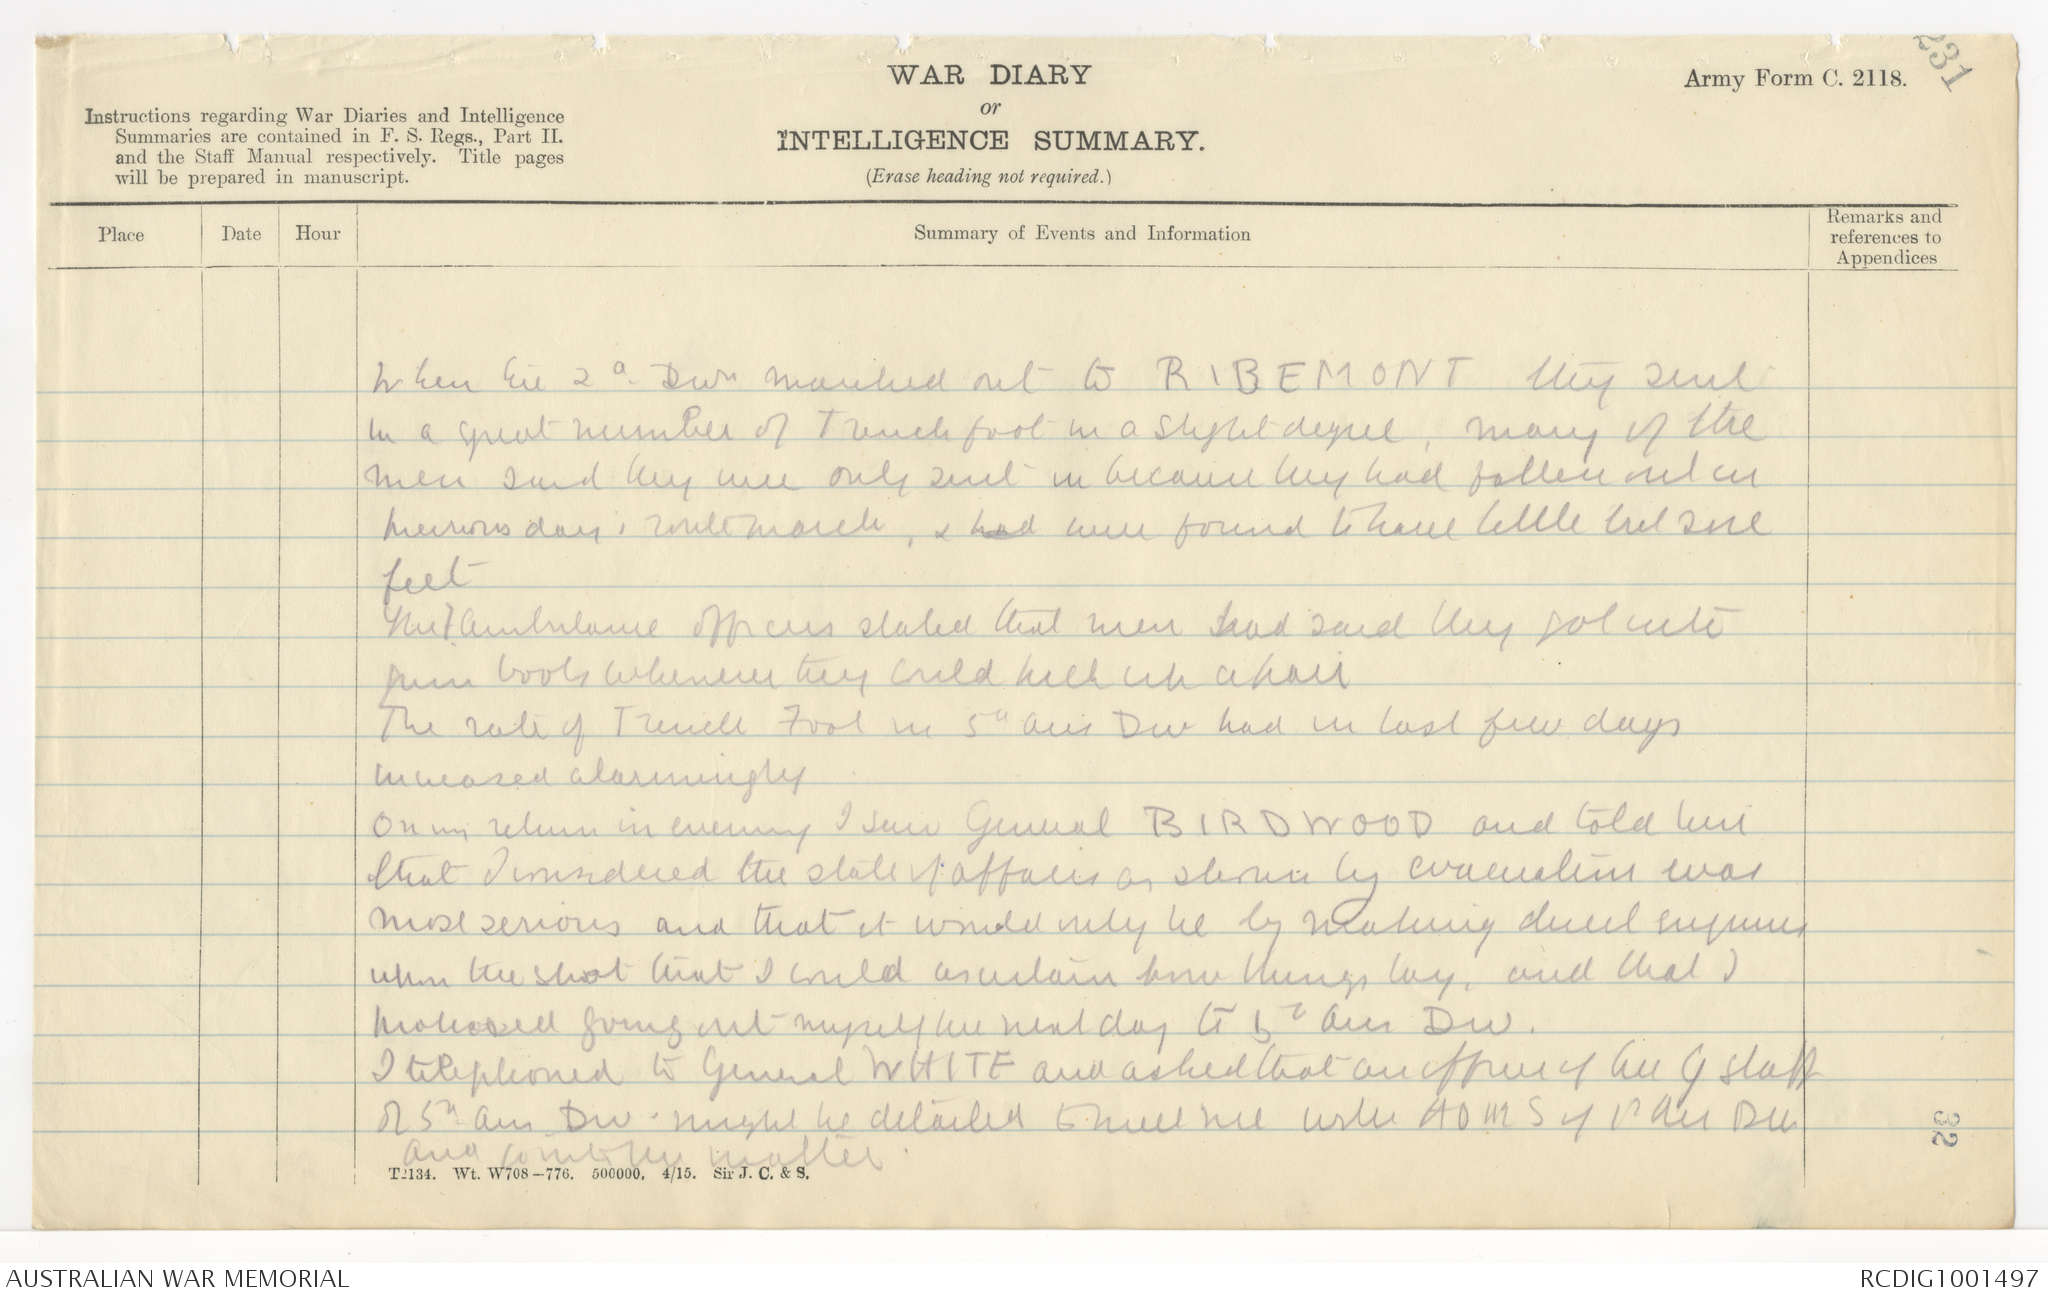 231
WAR DIARY
or
INTELLIGENCE SUMMARY.
(Erase heading not required.)
Army Form C. 2118.
Instructions regarding War Diaries and Intelligence
Summaries are contained in F. S. Regs., Part II.
and the Staff Manual respectively. Title pages
will be prepared in manuscript.
Place
Date
Hour
Summary of Events and Information
Remarks and
references to
Appendices
When the 2d. Divn marched out to RIBEMONT they sent
in a great number of Trench foot in a slight degree, many of the
men said they were only sent in because they had fallen out in
previous day's route march, & had were found to have little but sore
feet
The Ambulance officers stated that men had said they got into
gum boots whenever they could pick up a pair
The rate of Trench Foot in 5th Aus Div had in last few days
increased alarmingly
On my return in evening I saw General BIRDWOOD and told him
that I considered the state of affairs as shown by evacuations was
most serious and that it would only be by making direct enquiries
upon the spot that I could ascertain how things lay, and that I
proposed going out myself the next day to 5th Aus Div.
I telephoned to General WHITE and asked that an officer of the G staff
of 5th Aus Div might be detailed to meet me with ADMS of Aus Div
and into the matter.
T2134. Wt. W708-776. 500000. 4/15. Sir J. C. & S.
32
AUSTRALIAN WAR MEMORIAL
RCDIG1001497